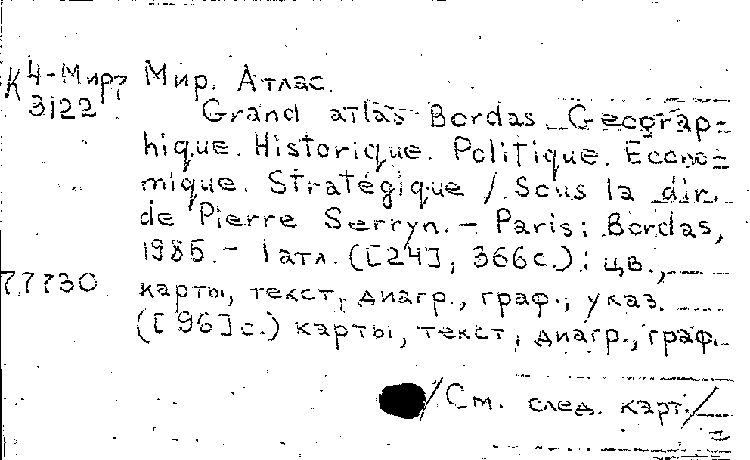 К 4-Мир, Мир. Атлас.
3122 Grand atlas Bordas Geograp-
hique. Historique. Politique. Econo-
mique. Stratégique / Sous la dir.
de Pierre Serryn. – Paris: Bordas,
1985. – 1 атл. ([24], 366с.): цв.,
77730 карты, текст, диагр., граф., указ.
([96]с.) карты, текст, диагр., граф.
/См. след. карт./